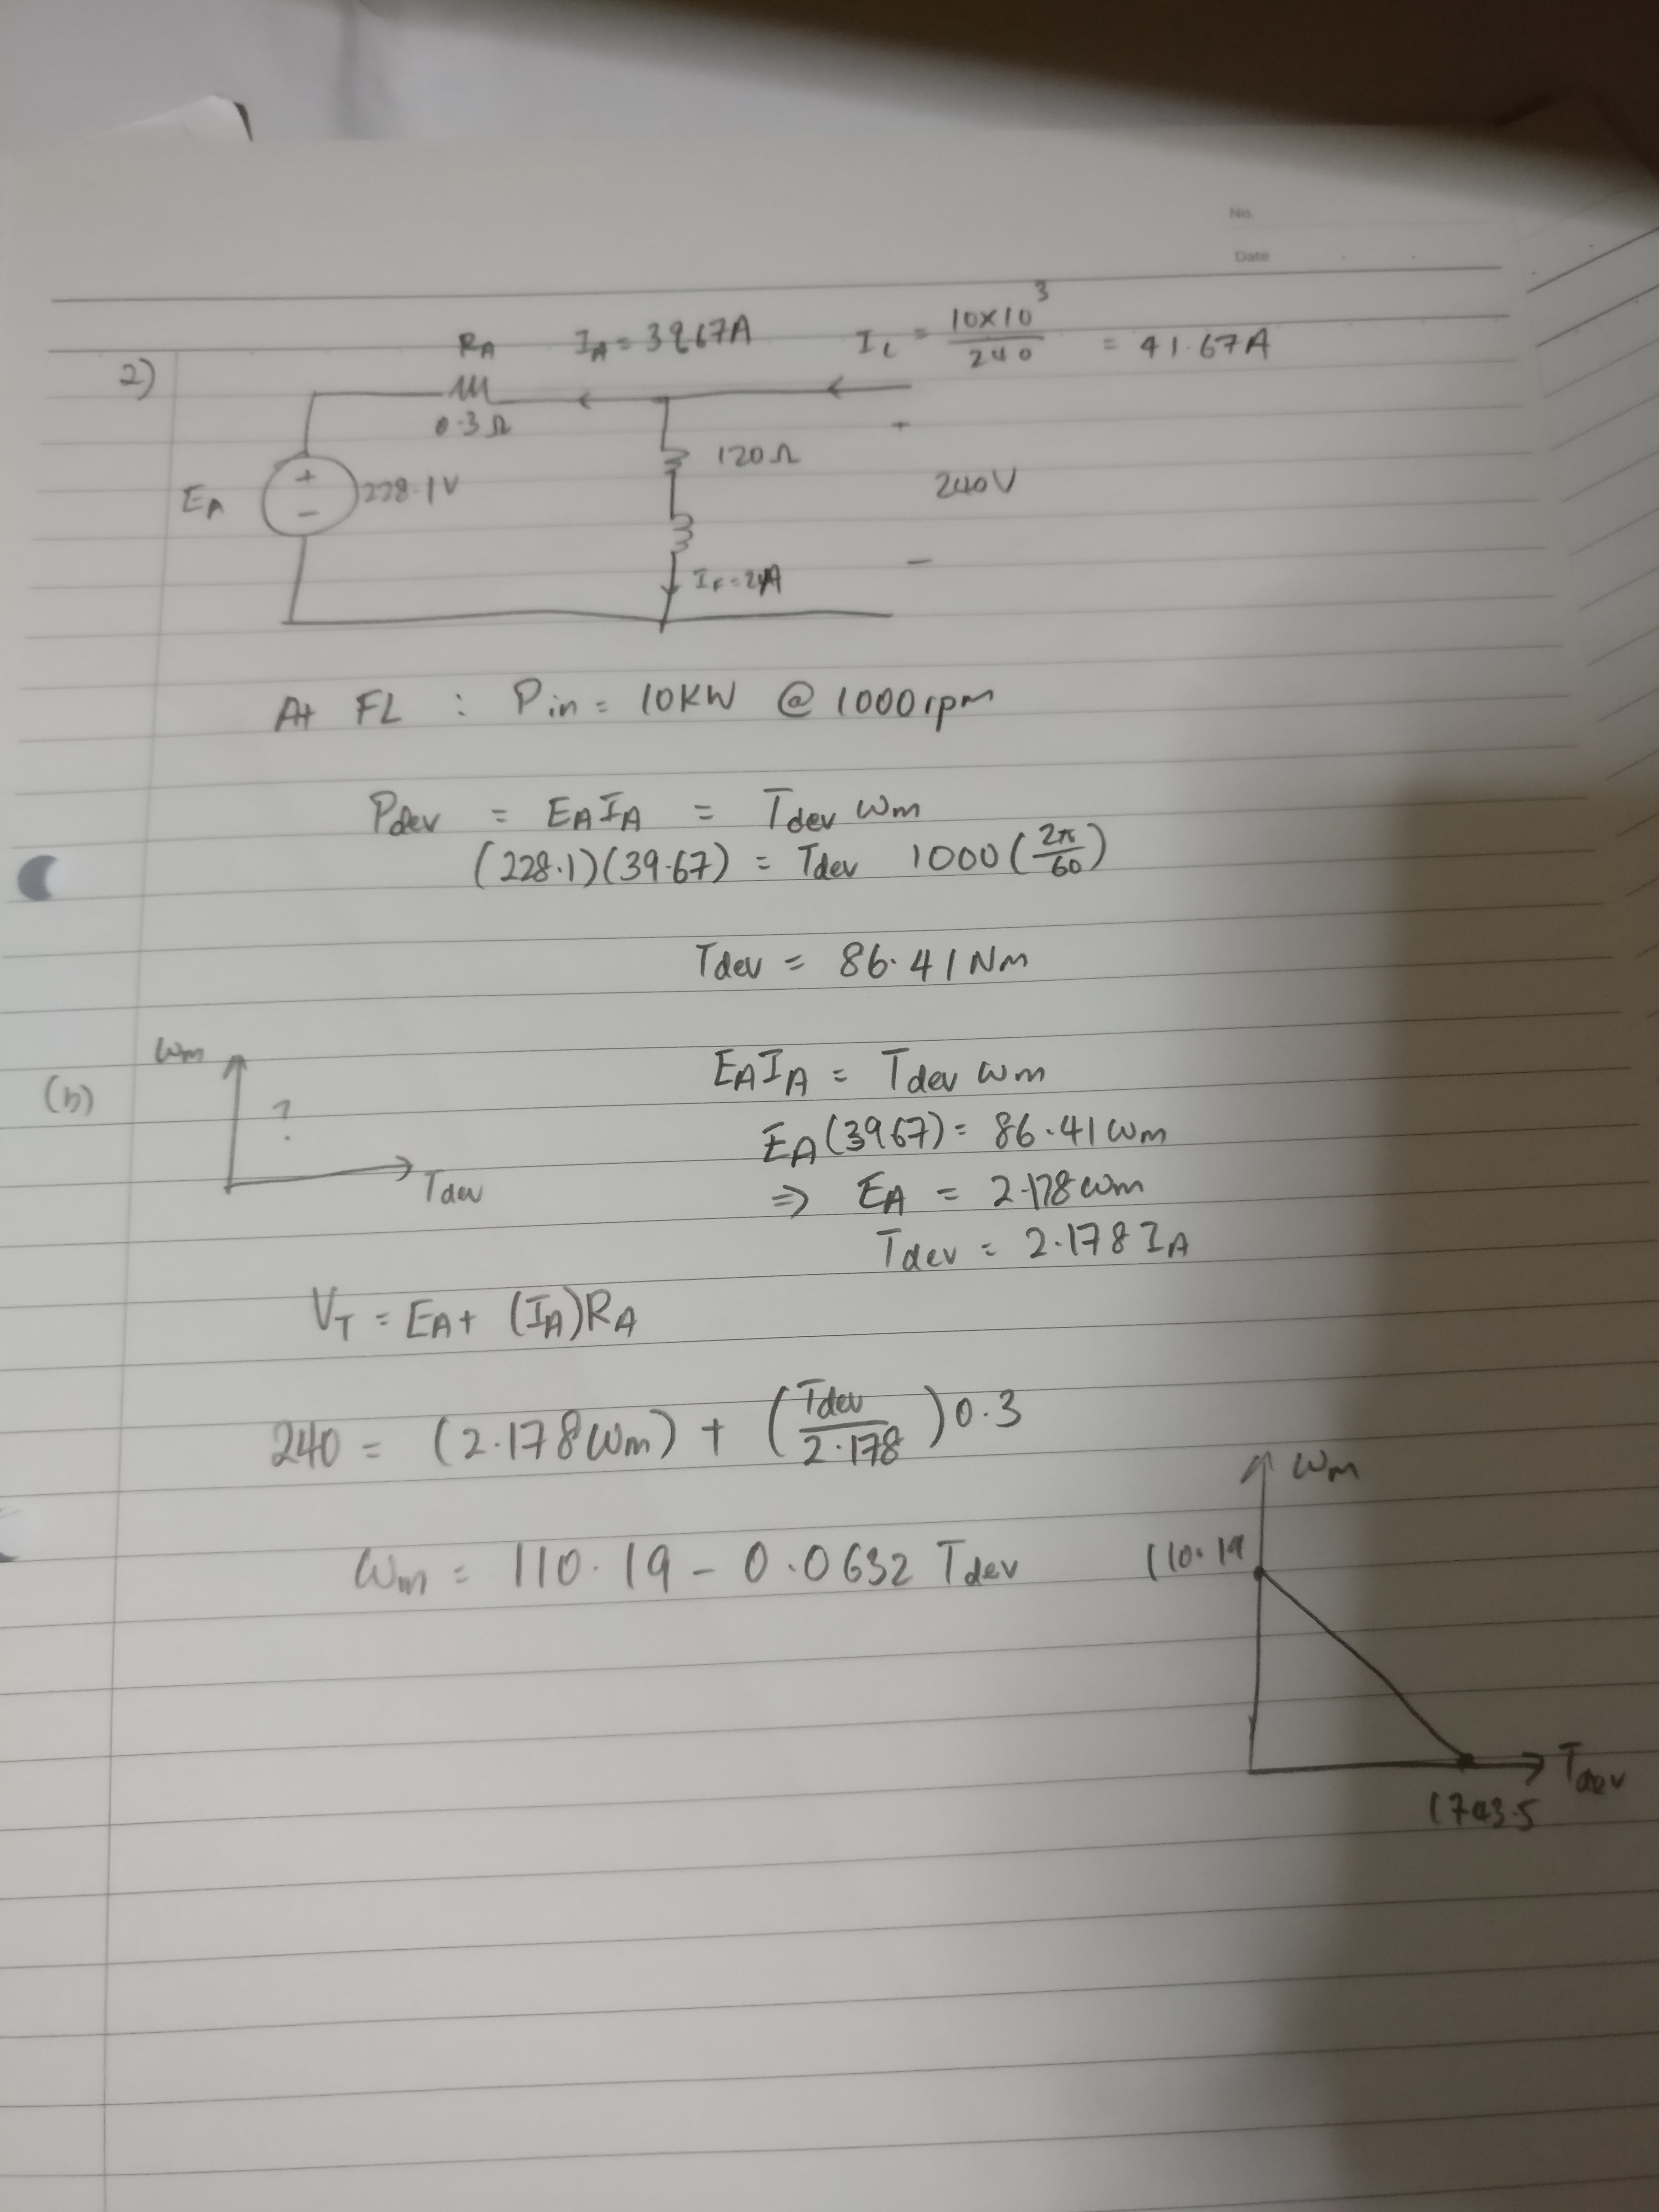 No.
Date
2)
R_A I_A = 39.67A I_L = (10×10^3)/240 = 41.67A
0.3Ω
+
120Ω
E_A + − 228.1V
240V
−
I_F = 2A
At FL : Pin = 10KW @ 1000rpm
P_dev = E_A I_A = T_dev ω_m
(228.1)(39.67) = T_dev 1000(2π/60)
T_dev = 86.41Nm
(b)
ω_m
?
T_dev
E_A I_A = T_dev ω_m
E_A(39.67) = 86.41ω_m
⇒ E_A = 2.178ω_m
T_dev = 2.178 I_A
V_T = E_A + (I_A)R_A
240 = (2.178ω_m) + (T_dev/2.178)0.3
ω_m = 110.19 − 0.0632 T_dev
ω_m
110.19
T_dev
1743.5